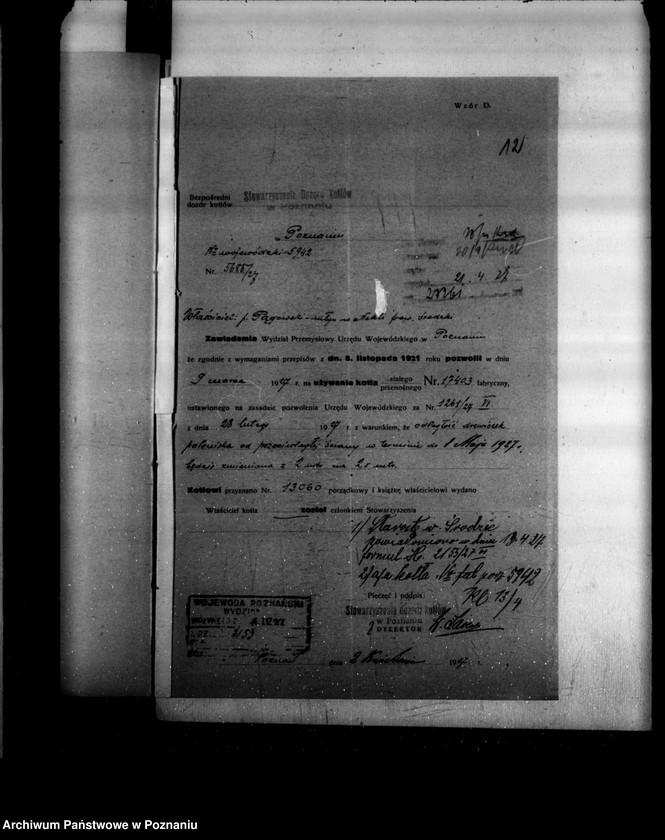 Wzór D.
12
Bezpośredni
dozór kotłów
Stowarzyszenie Dozoru Kotłów
w Poznaniu
w Poznaniu
Nr wojewódzki 5942
Nr. 5686/27
21. 4. 27
Właściciel: p.
Zawiadamia Wydział Przemysłowy Urzędu Wojewódzkiego w Poznaniu
że zgodnie z wymaganiami przepisów z dn. 8. listopada 1921 roku pozwolił w dniu
9 marca 1927 r. na używanie kotła stałego przenośnego Nr. 17403 fabryczny,
ustawionego na zasadzie pozwolenia Urzędu Wojewódzkiego za Nr. 1261/27 VI
z dnia 28 lutego 1927 r. z warunkiem, że odległość drzwiczek
paleniska od przeciwległej ściany w terminie do 1 Maja 1927.
będzie zmieniona z 2 mtr na 2 mtr.
Kotłowi przyznano Nr. 13060 porządkowy i książkę właścicielowi wydano
Właściciel kotła został członkiem Stowarzyszenia
1) Starostę w Środzie
powiadomiono w dniu 13 4 27
formul Nr. 2153/27 VI
2) a/a kotła Nr fab poz 5942
13/4
Pieczęć i podpis
Stowarzyszenia dozoru kotłów
w Poznaniu
DYREKTOR
WOJEWODA POZNAŃSKI
WYDZIAŁ
2153
Poznań dnia 2 Kwietnia 1927 r.
Archiwum Państwowe w Poznaniu